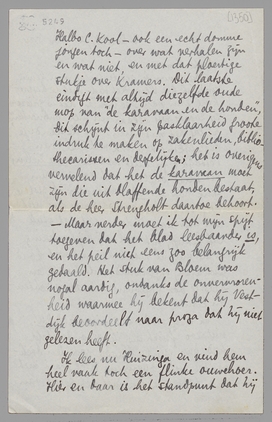 5249
(1350)
Halbo C. Kool – ook een echt domme
jongen toch – over wat verhalen zijn
en wat niet, en met dat ploertige
stukje over Kramers. Dit laatste
eindigt met altijd diezelfde oude
mop van "de karavaan en de honden".
Dit schijnt in zijn pasklaarheid groote
indruk te maken op zakenlieden, biblio-
thecarissen en dergelijken; het is overigens
vervelend dat het de karavaan moet
zijn die uit blaffende honden bestaat,
als de heer Strengholt daartoe behoort.
– Maar verder moet ik tot mijn spijt
toegeven dat het blad leesbaarder is,
en het peil niet eens zoo belangrijk
gedaald. Het stuk van Bloem was
nogal aardig, ondanks de onvervroren-
heid waarmee hij bekent dat hij Vest-
dijk beoordeelt naar proza dat hij niet
gelezen heeft.
Ik lees nu Huizinga en vind hem
heel vaak toch een flinke ouwehoer.
Hier en daar is het standpunt dat hij